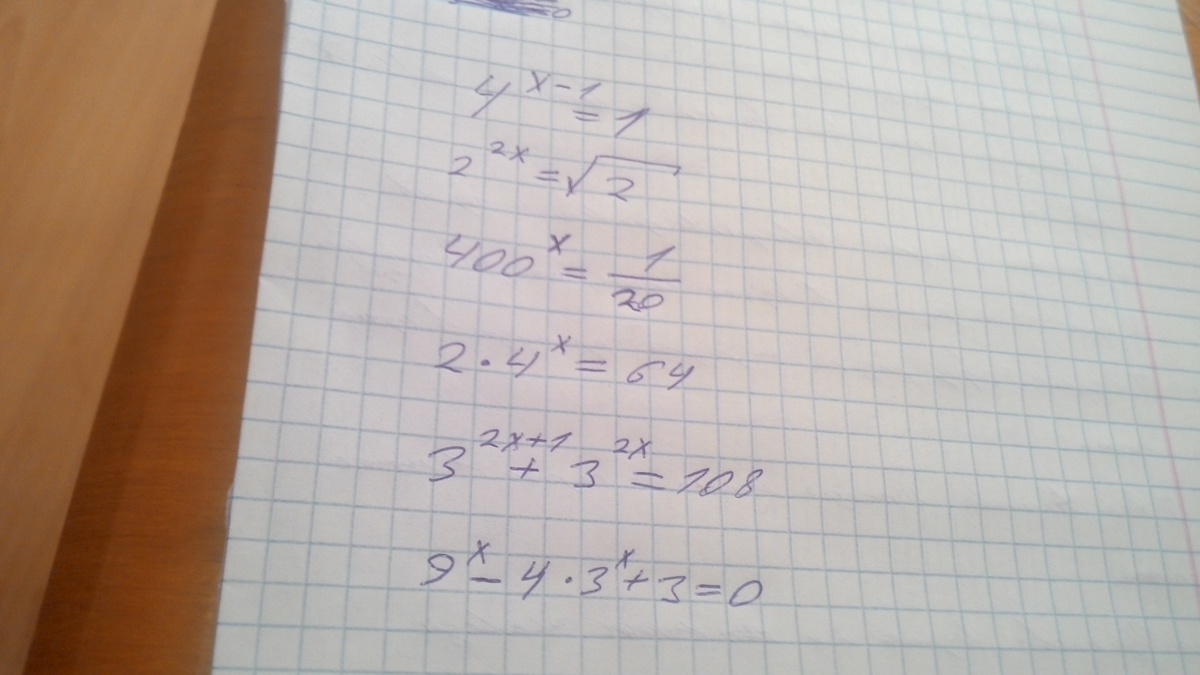 4^{x-1} = 1
2^{2x} = √2
400^x = 1/20
2 · 4^x = 64
3^{2x+1} + 3^{2x} = 108
9^x - 4 · 3^x + 3 = 0